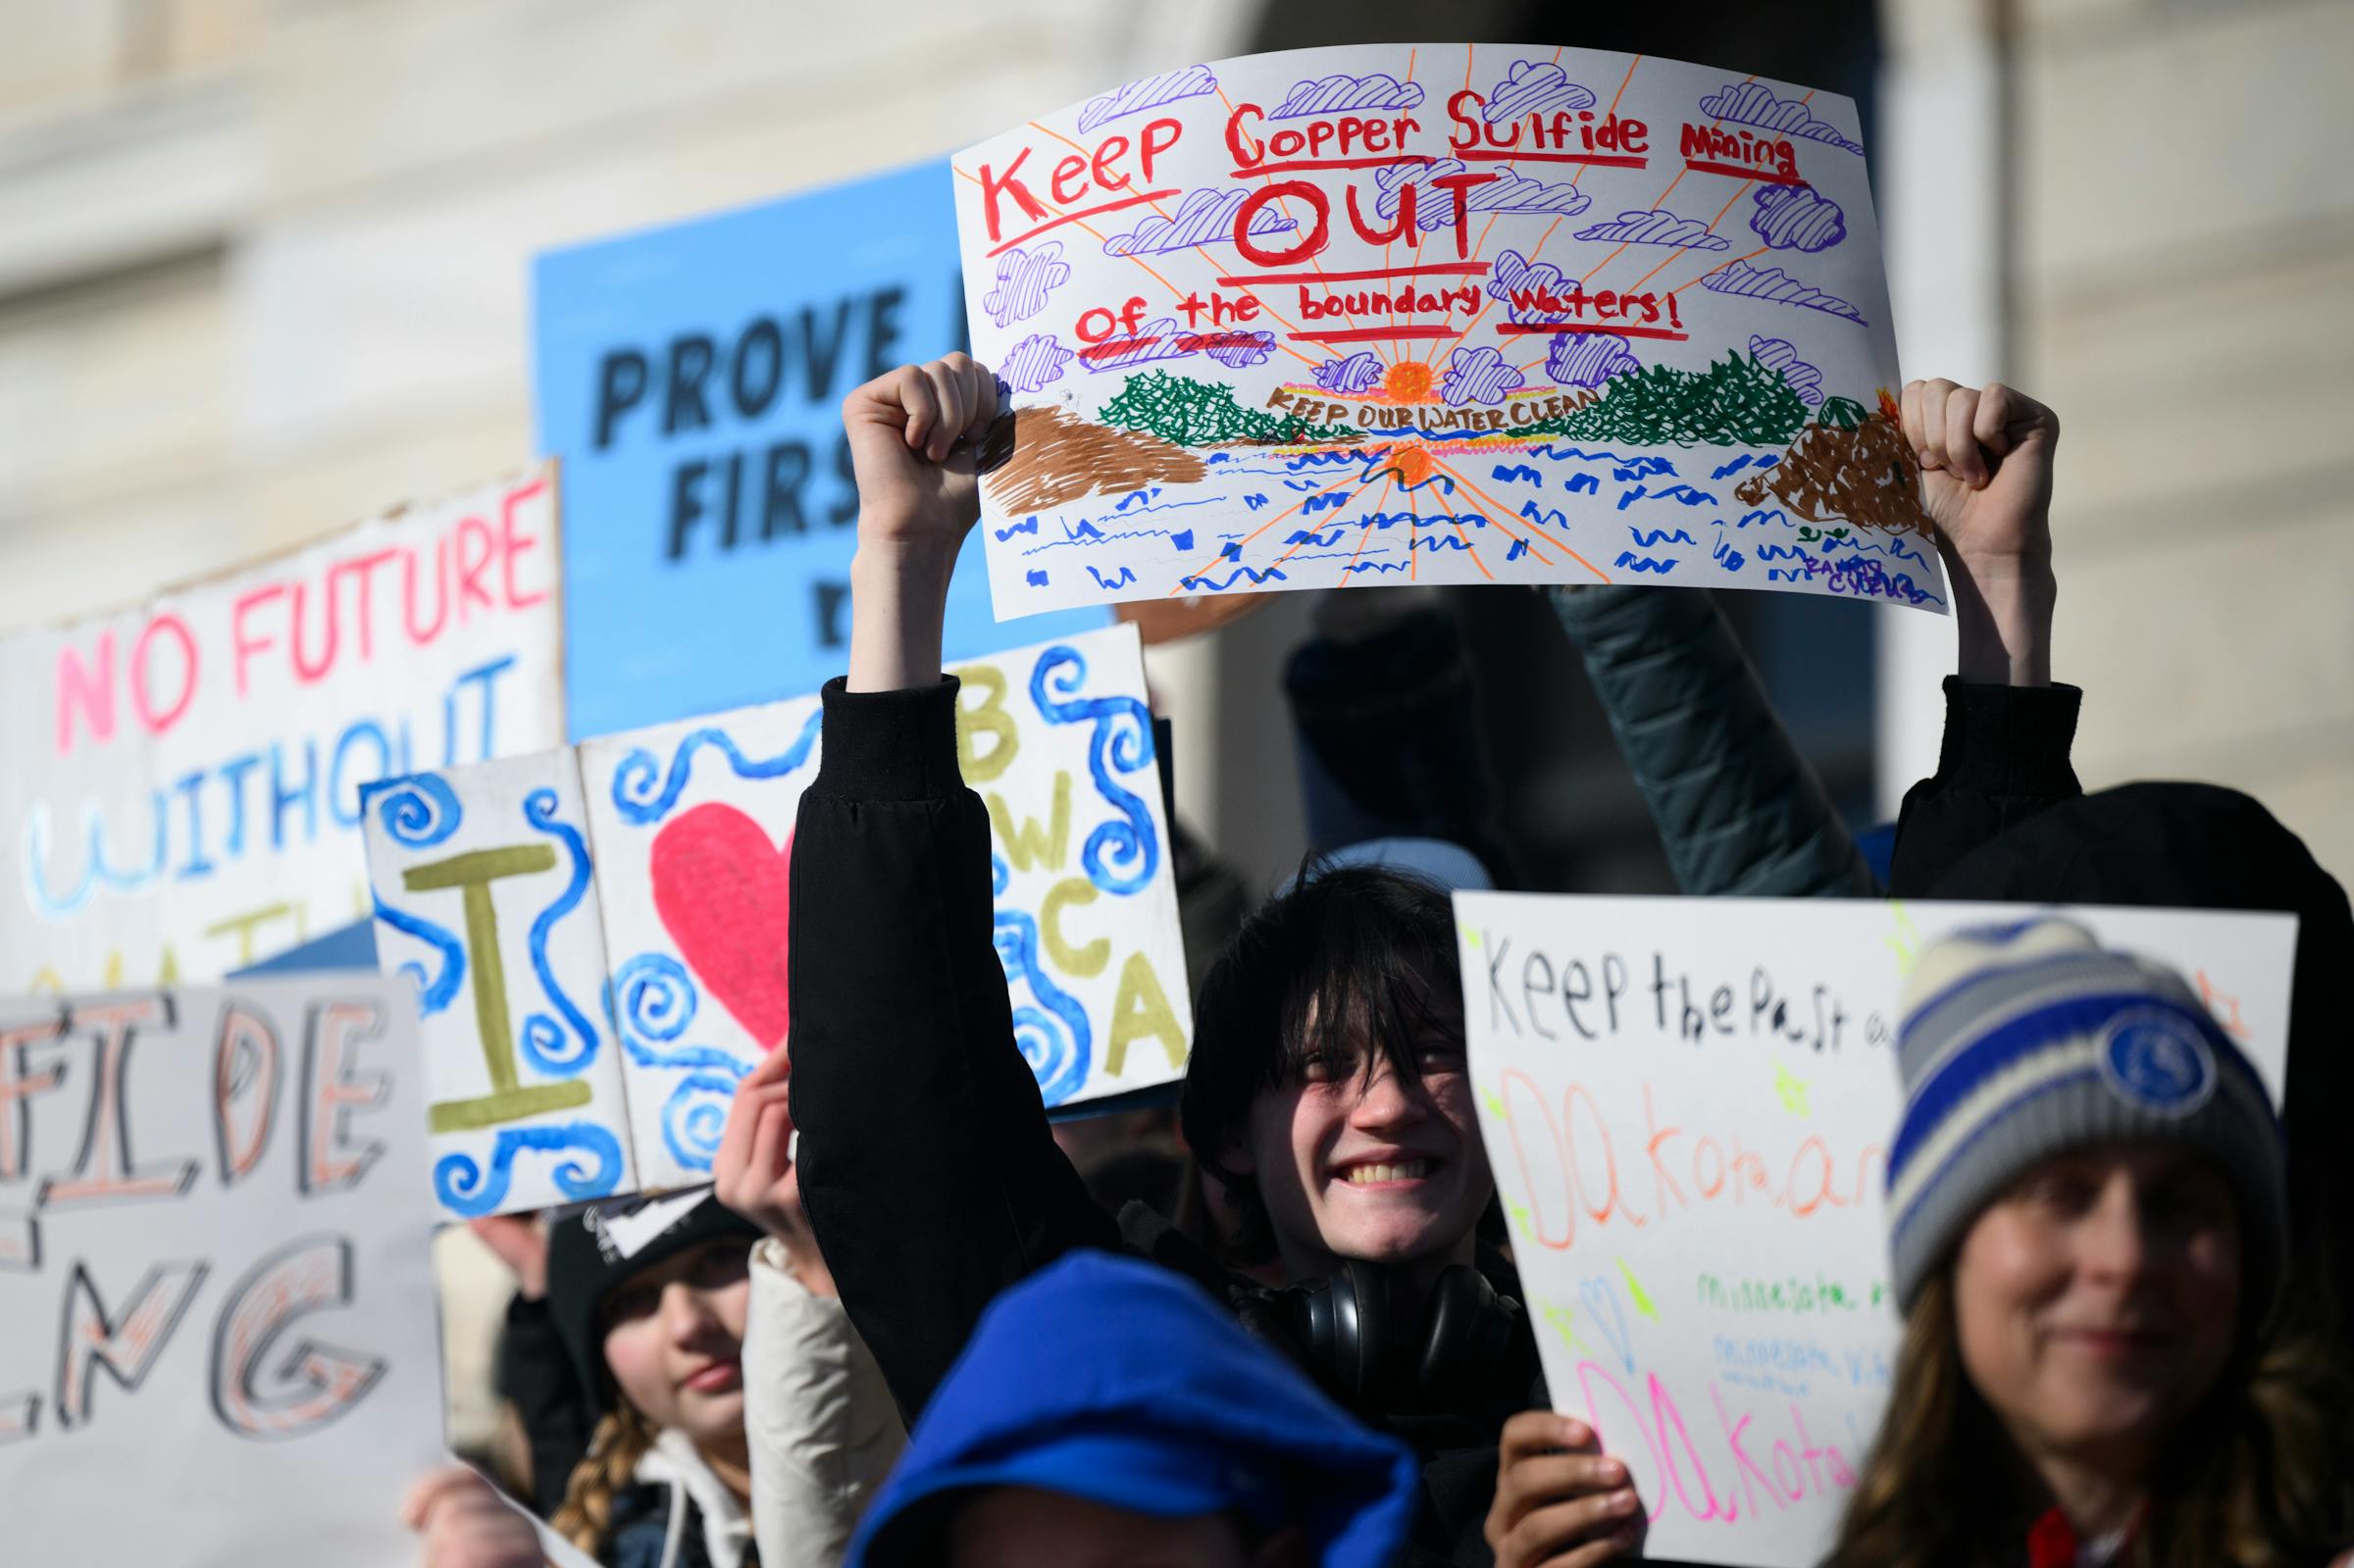 Keep Copper Sulfide Mining
OUT
Of the boundary Waters!
KEEP OUR WATER CLEAN
PROVE
FIRS
NO FUTURE
WITHOUT
I
BWCA
FIDE
NG
Keep the Past
Dakota
minnesota
minnesota
Dakota